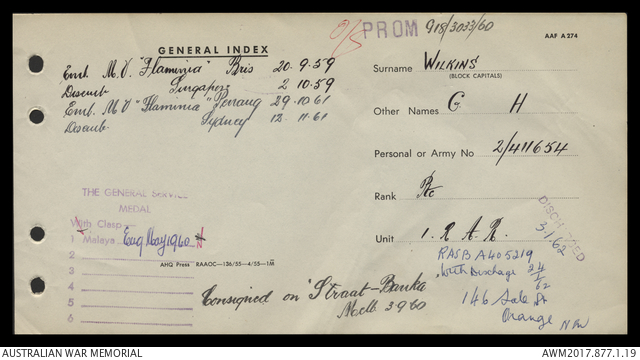 O/S PROM 918/3033/60
AAF A 274
GENERAL INDEX
Emb. M.V. "Flaminia" Bris 20.9.59
Disemb Singapore 2 10.59
Emb. M.V "Flaminia" Penang 29.10.61
Disemb. Sydney 12.11.61
Surname WILKINS
(BLOCK CAPITALS)
Other Names G H
Personal or Army No 2/411654
Rank Pte
Unit 1. R A R.
DISCHARGED
5/1/62
RASB A405219
with Discharge 24/1/62
146 Sale St
Orange NSW
THE GENERAL SERVICE
MEDAL
With Clasp
1 Malaya Enq May 1960 N
2
3
4
5
6
AHQ Press RAAOC—136/55—4/55—1M
Consigned on "Straat-Banka
Melb 3 9 60
AUSTRALIAN WAR MEMORIAL
AWM2017.877.1.19